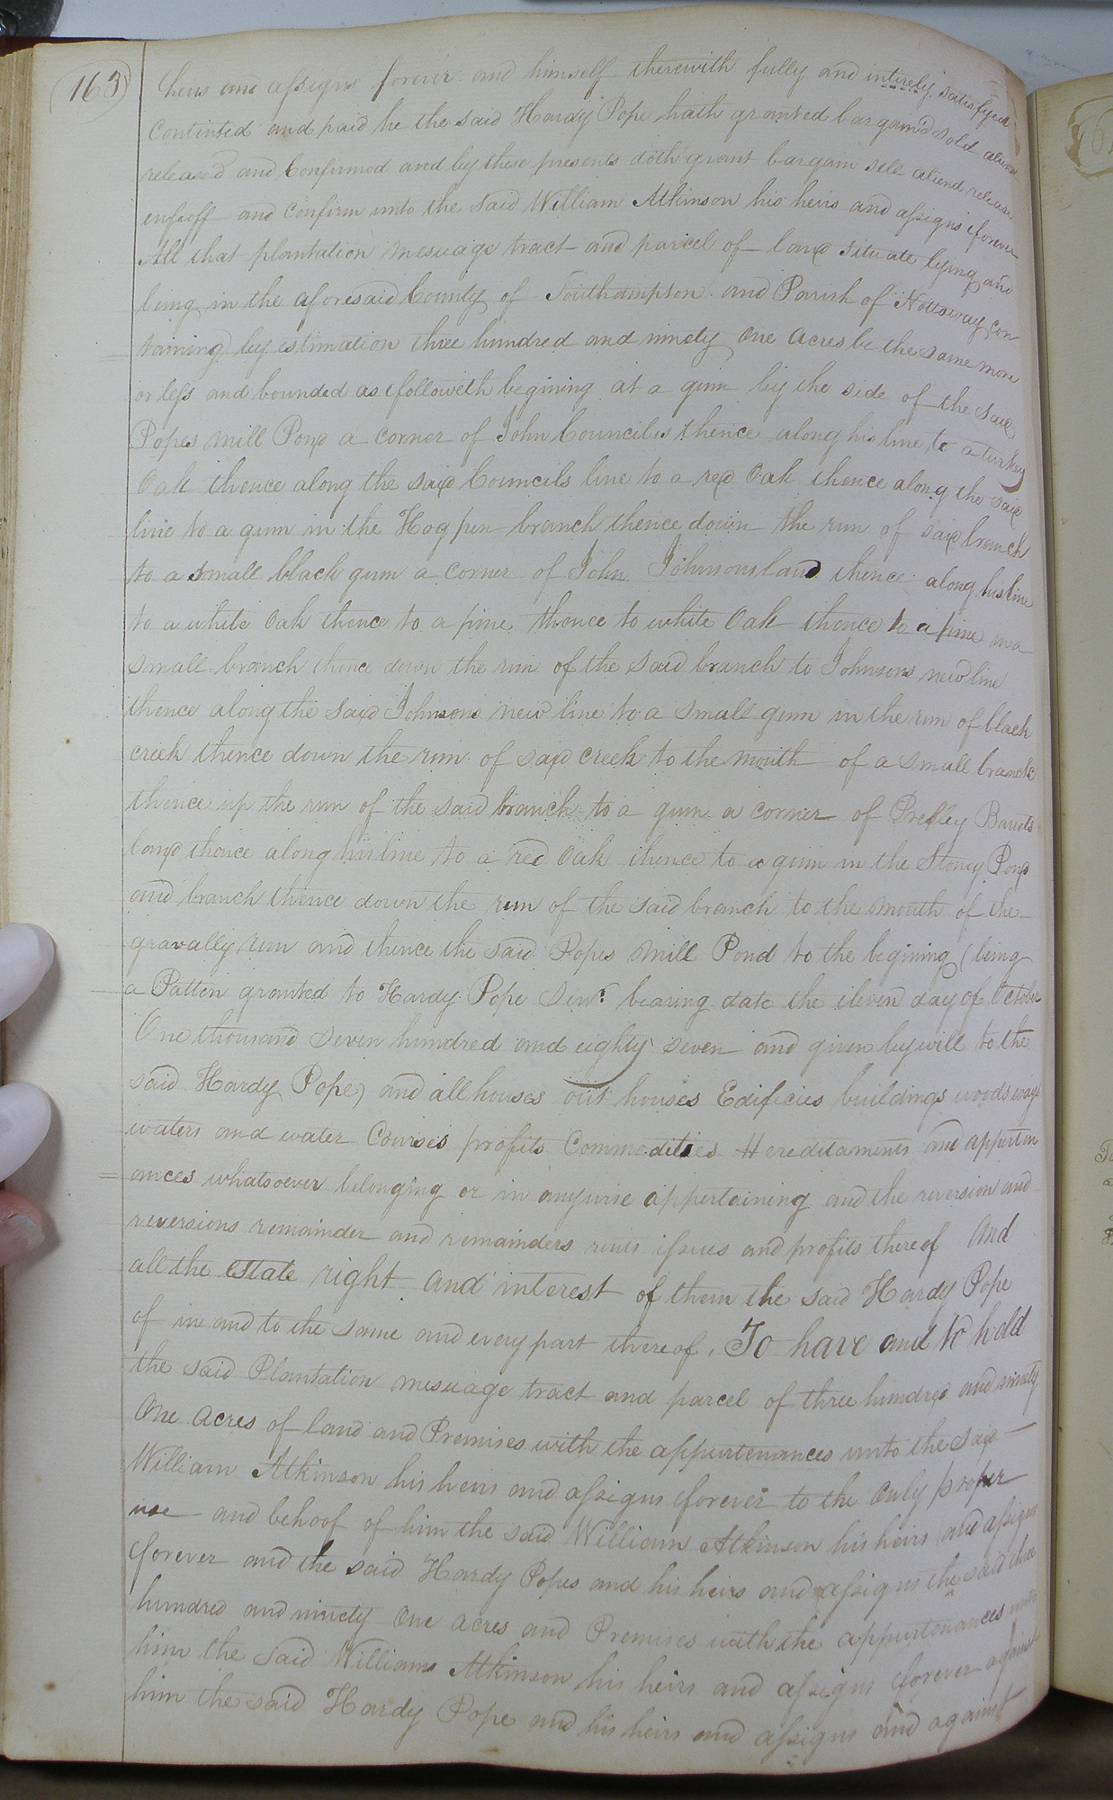 163
heirs and assigns forever and himself therewith fully and intirely satisfyed
Contented and paid he the said Hardy Pope hath granted bargained sold aliened
released and Confirmed and by these presents doth grant bargain sell aliend release
enfeoff and Confirm unto the said William Atkinson his heirs and assigns forever
All that plantation mesuage tract and parcel of land situate lying and
being in the aforesaid County of Southampton and Parish of Nottoway con
taining by estimation three hundred and ninety one acres be the same more
or less and bounded as followeth begining at a gum by the side of the said
Popes Mill Pond a corner of John Councils thence along his line to a turkey
Oak thence along the said Councils line to a red Oak thence along the said
line to a gum in the Hogpen branch thence down the run of said branch
to a small black gum a corner of John Johnsons land thence along his line
to a white Oak thence to a pine thence to white Oak thence to a pine in a
small branch thence down the run of the said branch to Johnsons new line
thence along the said Johnsons new line to a small gum in the run of black
creek thence down the run of said creek to the mouth of a small branch
thence up the run of the said branch to a gum a corner of Presley Barrets
land thence along his line to a red Oak thence to a gum in the Stoney Pond
and branch thence down the run of the said branch to the mouth of the
gravally run and thence the said Popes Mill Pond to the begining (being
a Patten granted to Hardy Pope Senr. bearing date the eleven day of October
One thousand seven hundred and eighty seven and given by will to the
said Hardy Pope) and all houses out houses Edificies buildings woods ways
waters and water Courses profits Commodities Hereditaments and apperten
ances whatsoever belonging or in anywise appertaining and the reversion and
reversions remainder and remainders rents issues and profits thereof And
all the estate right and interest of them the said Hardy Pope
of in and to the same and every part thereof, To have and to hold
the said Plantation mesuage tract and parcel of three hundred and ninety
One acres of land and Premises with the appurtenances unto the said
William Atkinson his heirs and assigns forever to the Only proper
use and behoof of him the said William Atkinson his heirs and assigns
forever and the said Hardy Popes and his heirs and assigns the said three
hundred and ninety One acres and Premises with the appurtenances unto
him the said Williams Atkinson his heirs and assigns forever against
him the said Hardy Pope and his heirs and assigns and against